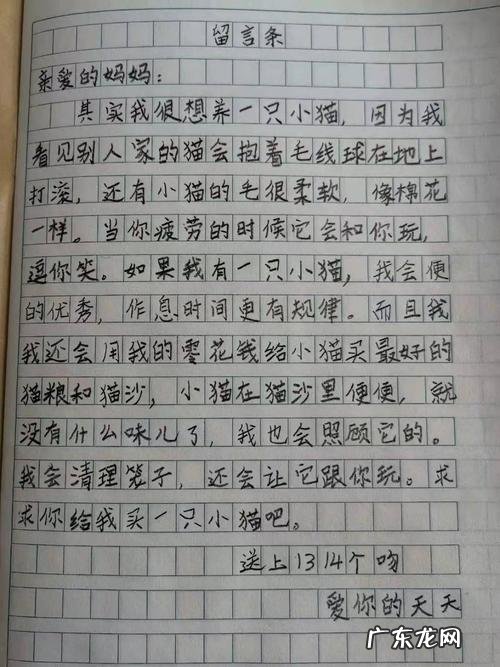 留言条
亲爱的妈妈：
其实我很想养一只小猫，因为我
看见别人家的猫会抱着毛线球在地上
打滚，还有小猫的毛很柔软，像棉花
一样。当你疲劳的时候它会和你玩，
逗你笑。如果我有一只小猫，我会便
的优秀，作息时间更有规律。而且我
我还会用我的零花钱给小猫买最好的
猫粮和猫沙，小猫在猫沙里便便，就
没有什么味儿了，我也会照顾它的。
我会清理笼子，还会让它跟你玩。求
求你给我买一只小猫吧。
送上1314个吻
爱你的天天
广东龙网